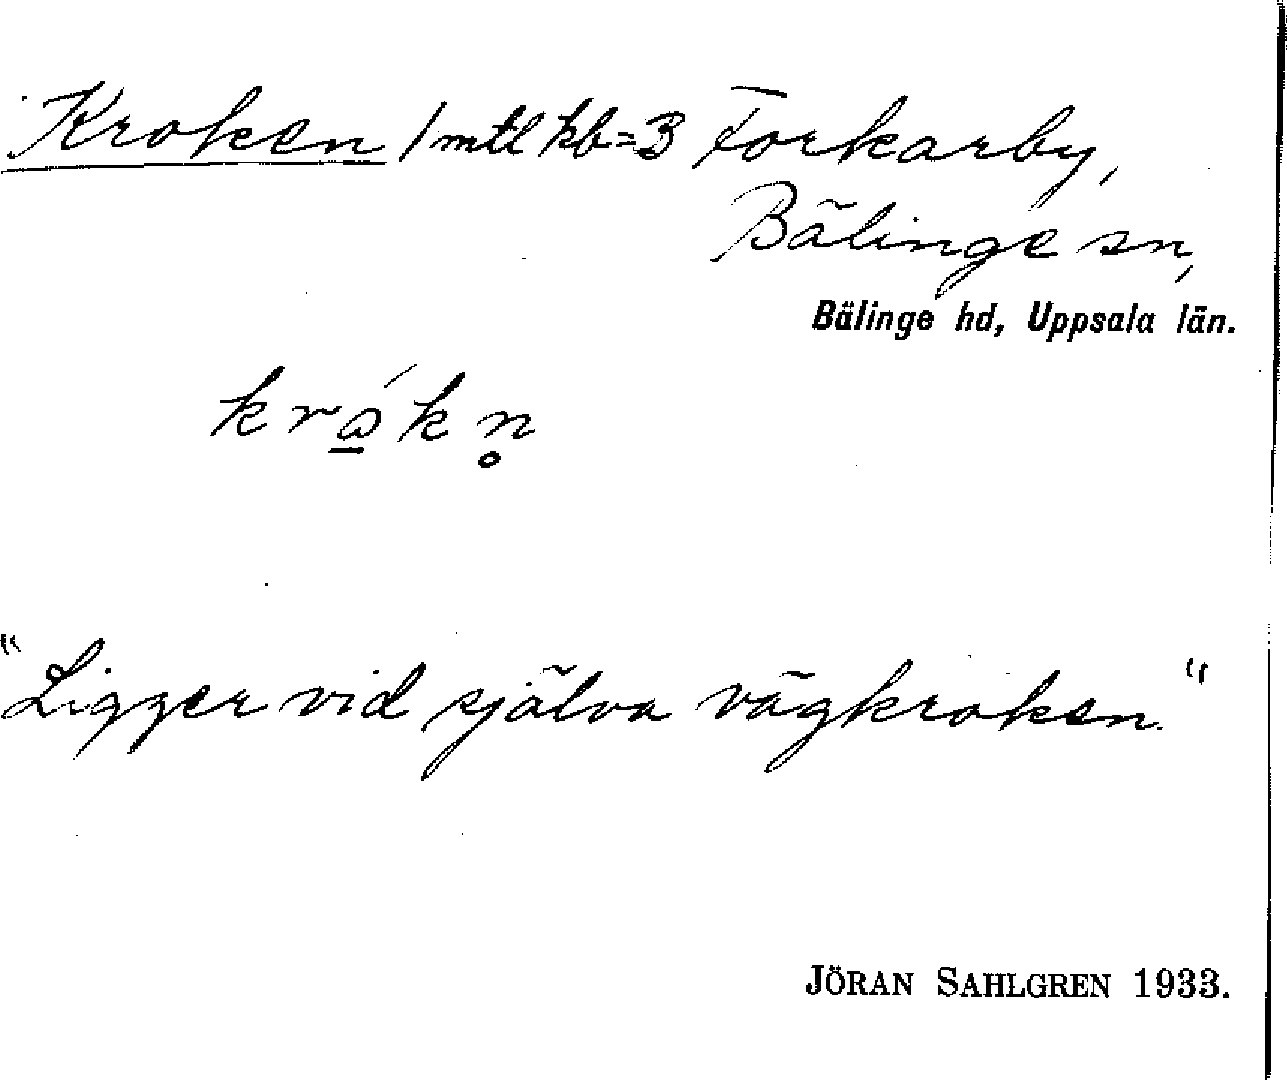 Kroken 1 mtl kb=3 Forkarby,
Bälinge sn,
Bälinge hd, Uppsala län.
krώ̱kn̥
"Ligger vid själva vägkroken."
JÖRAN SAHLGREN 1933.